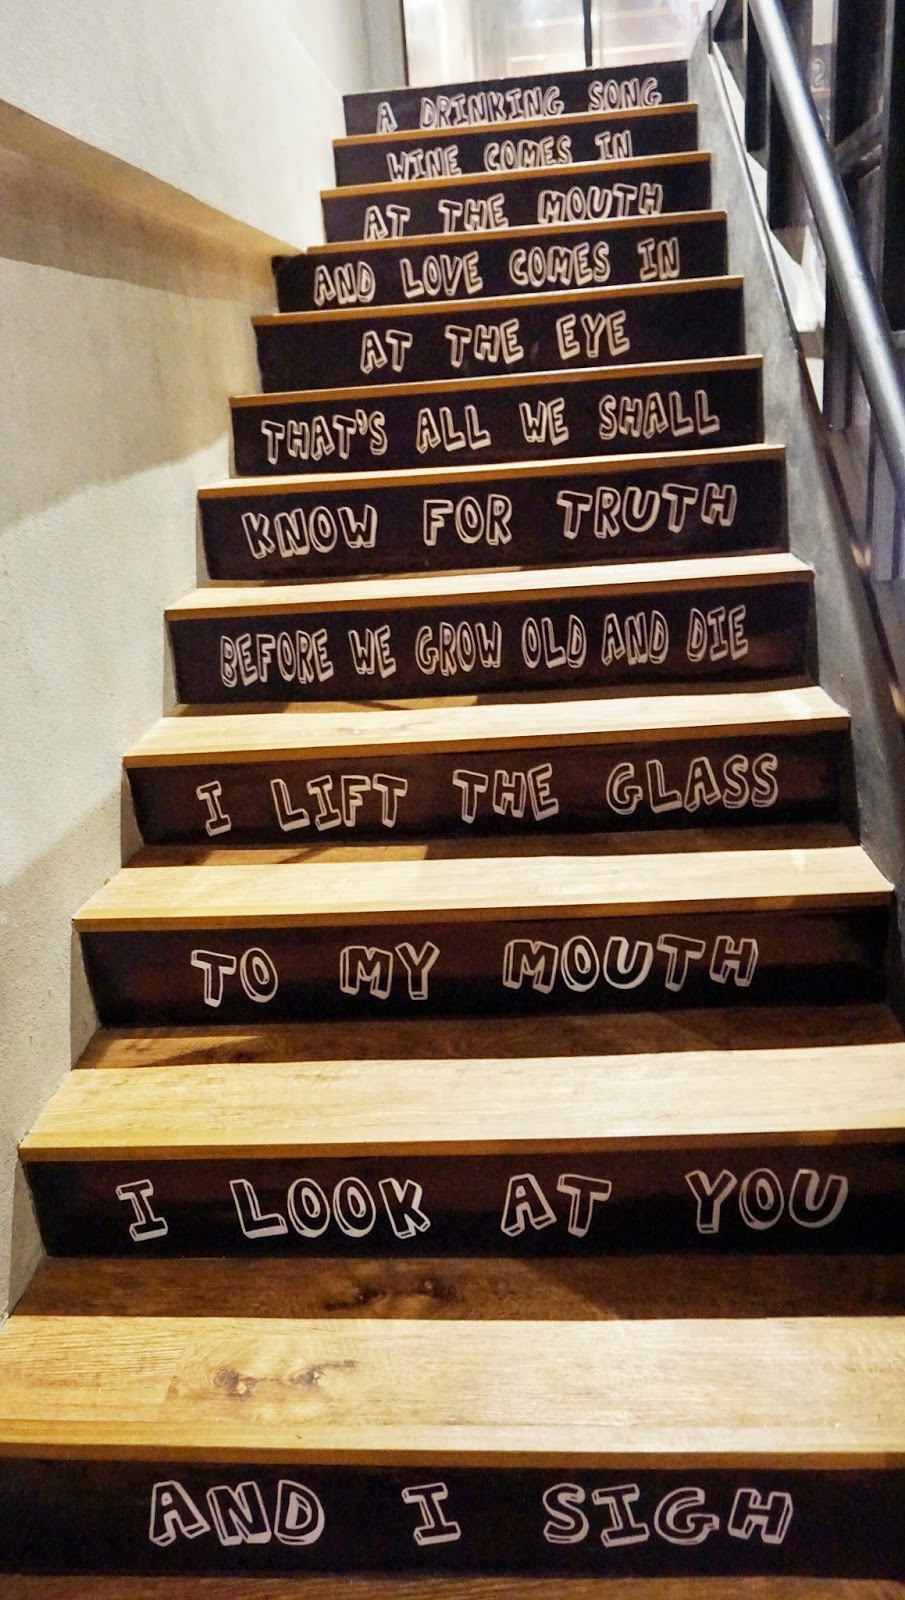 A DRINKING SONG
WINE COMES IN
AT THE MOUTH
AND LOVE COMES IN
AT THE EYE
THAT'S ALL WE SHALL
KNOW FOR TRUTH
BEFORE WE GROW OLD AND DIE
I LIFT THE GLASS
TO MY MOUTH
I LOOK AT YOU
AND I SIGH